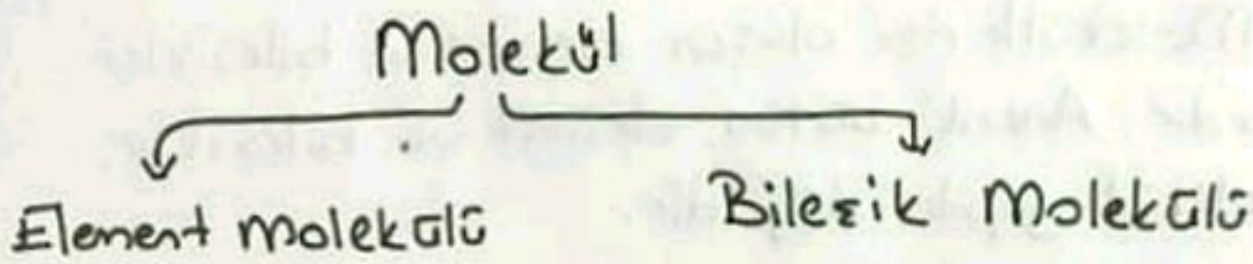 Molekül
Element molekülü
Bileşik Molekülü